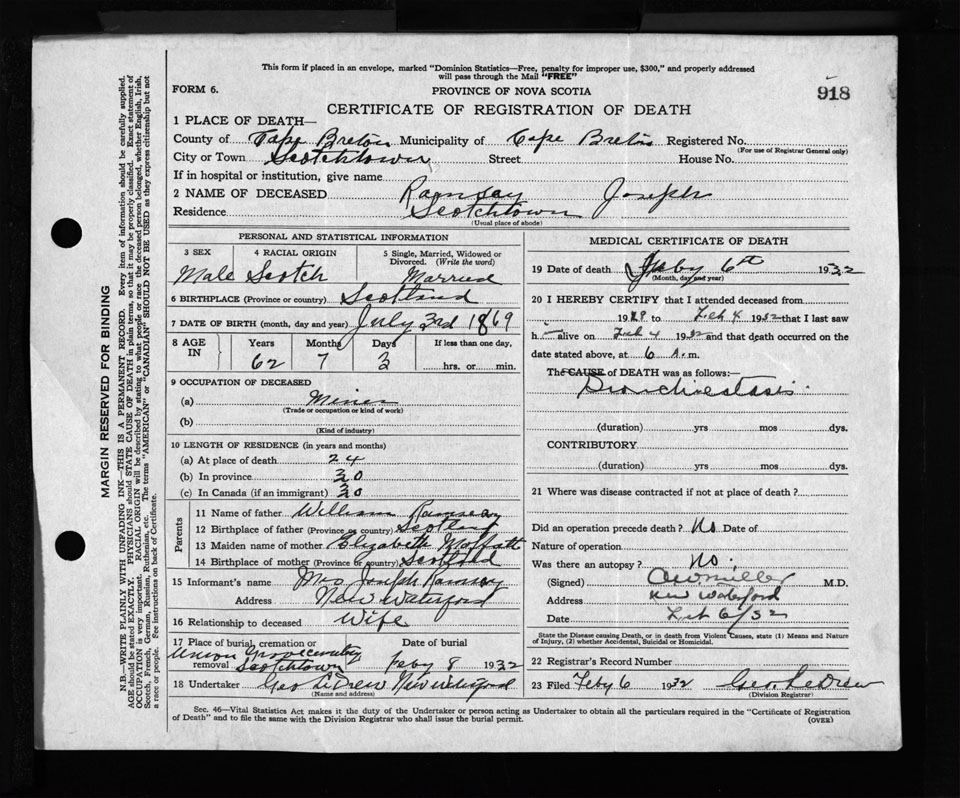 This form if placed in an envelope, marked "Dominion Statistics—Free, penalty for improper use, $300," and properly addressed
will pass through the Mail "FREE"
FORM 6.
PROVINCE OF NOVA SCOTIA
918
CERTIFICATE OF REGISTRATION OF DEATH
1 PLACE OF DEATH—
County of Cape Breton Municipality of Cape Breton Registered No.
(For use of Registrar General only)
City or Town Scotchtown Street House No.
If in hospital or institution, give name
2 NAME OF DECEASED Ramsay Joseph
Residence Scotchtown
(Usual place of abode)
PERSONAL AND STATISTICAL INFORMATION
3 SEX 4 RACIAL ORIGIN 5 Single, Married, Widowed or
Divorced. (Write the word)
Male Scotch Married
6 BIRTHPLACE (Province or country) Scotland
7 DATE OF BIRTH (month, day and year) July 3rd 1869
8 AGE IN Years Months Days If less than one day,
62 7 3 hrs. or min.
9 OCCUPATION OF DECEASED
(a) Miner
(Trade or occupation or kind of work)
(b)
(Kind of industry)
10 LENGTH OF RESIDENCE (in years and months)
(a) At place of death 24
(b) In province 30
(c) In Canada (if an immigrant) 30
Parents
11 Name of father William Ramsay
12 Birthplace of father (Province or country) Scotland
13 Maiden name of mother Elizabeth Moffatt
14 Birthplace of mother (Province or country) Scotland
15 Informant's name Mrs Joseph Ramsay
Address New Waterford
16 Relationship to deceased Wife
17 Place of burial, cremation or removal Date of burial
Union Grove cemetry
Scotchtown Feby 8 1932
18 Undertaker Geo LeDrew New Waterford
(Name and address)
MEDICAL CERTIFICATE OF DEATH
19 Date of death Feby 6th 1932
(Month, day and year)
20 I HEREBY CERTIFY that I attended deceased from
19 to Feb 4 1932 that I last saw
h alive on Feb 4 1932 and that death occurred on the
date stated above, at 6 m.
The CAUSE of DEATH was as follows:—
Bronchiectasis
(duration) yrs mos dys.
CONTRIBUTORY
(duration) yrs mos dys.
21 Where was disease contracted if not at place of death?
Did an operation precede death? No Date of
Nature of operation
Was there an autopsy? No.
(Signed) Miller M.D.
Address New Waterford
Date Feb 6/32
State the Disease causing Death, or in death from Violent Causes, state (1) Means and Nature
of Injury, (2) whether Accidental, Suicidal or Homicidal.
22 Registrar's Record Number
23 Filed Feby 6 1932 Geo. LeDrew
(Division Registrar)
Sec. 46—Vital Statistics Act makes it the duty of the Undertaker or person acting as Undertaker to obtain all the particulars required in the "Certificate of Registration
of Death" and to file the same with the Division Registrar who shall issue the burial permit.
(OVER)
MARGIN RESERVED FOR BINDING
N.B.—WRITE PLAINLY WITH UNFADING INK—THIS IS A PERMANENT RECORD. Every item of information should be carefully supplied.
AGE should be stated EXACTLY. PHYSICIANS should STATE CAUSE OF DEATH in plain terms, so that it may be properly classified. Exact statement of
OCCUPATION is very important. RACIAL ORIGIN will be described by stating to what people or race the deceased person belonged, whether English, Irish,
Scotch, French, German, Russian, Ruthenian, etc. The terms "AMERICAN" or "CANADIAN" SHOULD NOT BE USED as they express citizenship but not
a race or people. See instructions on back of Certificate.